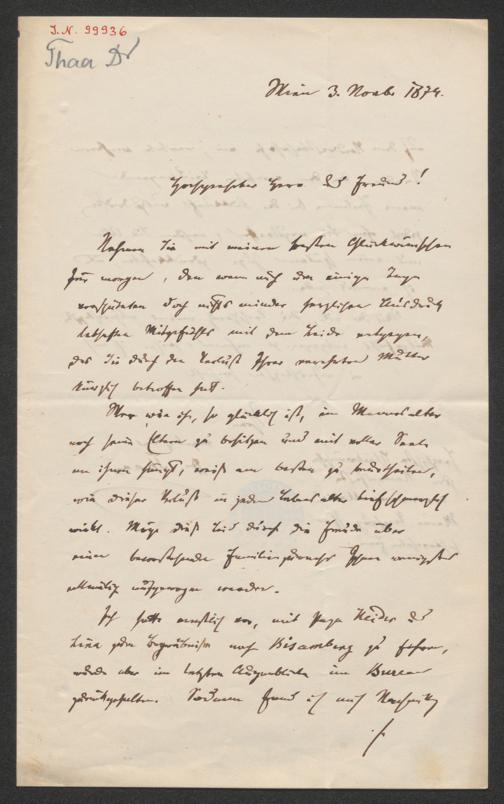 J.N. 99936
Thaa Dr
Wien 3. Novbr 1874.
Hochgeehrter Herr und Freund!
Nehmen Sie mit meinen besten Glückwünschen
für morgen, den wenn auch um einige Tage
verspäteten doch nichts minder herzlichen Ausdruck
lebhaften Mitgefühls mit dem Leide entgegen,
das Sie durch den Verlust Ihrer verehrten Mutter
kürzlich betroffen hat.
Wer wie ich, so glücklich ist, im Mannesalter
noch seine Eltern zu besitzen und mit voller Seele
an ihnen hängt, weiß am besten zu beurtheilen,
wie dieser Verlust in jedem Lebensalter tief schmerzlich
wirkt. Möge dieß Leid durch die Freude über
einen bevorstehenden Familienzuwachs Ihnen wenigstens
allmälig aufgewogen werden.
Ich hatte ernstlich vor, mit Papa Heider und
zum Begräbniße nach Bisamberg zu fahren,
wurde aber im letzten Augenblicke im Bureau
zurückgehalten. Sodann fand ich auch